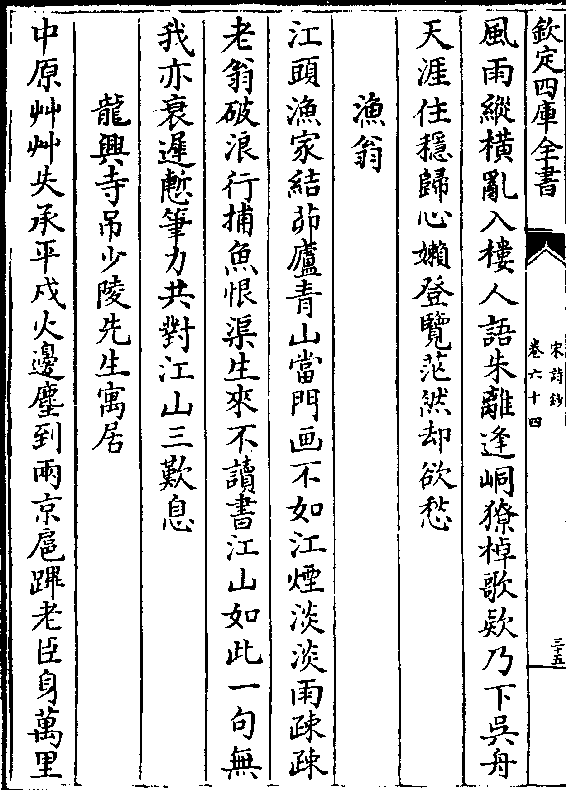 欽定四庫全書
宋詩鈔
卷六十四
三十五
風雨縱橫亂入樓人語朱離逢峒獠棹歌欵乃下吳舟
天涯住穩歸心嬾登覽茫然却欲愁
漁翁
江頭漁家結茆廬青山當門画不如江煙淡淡雨疎疎
老翁破浪行捕魚恨渠生來不讀書江山如此一句無
我亦衰遲慙筆力共對江山三歎息
龍興寺吊少陵先生寓居
中原艸艸失承平戍火邊塵到兩京扈蹕老臣身萬里